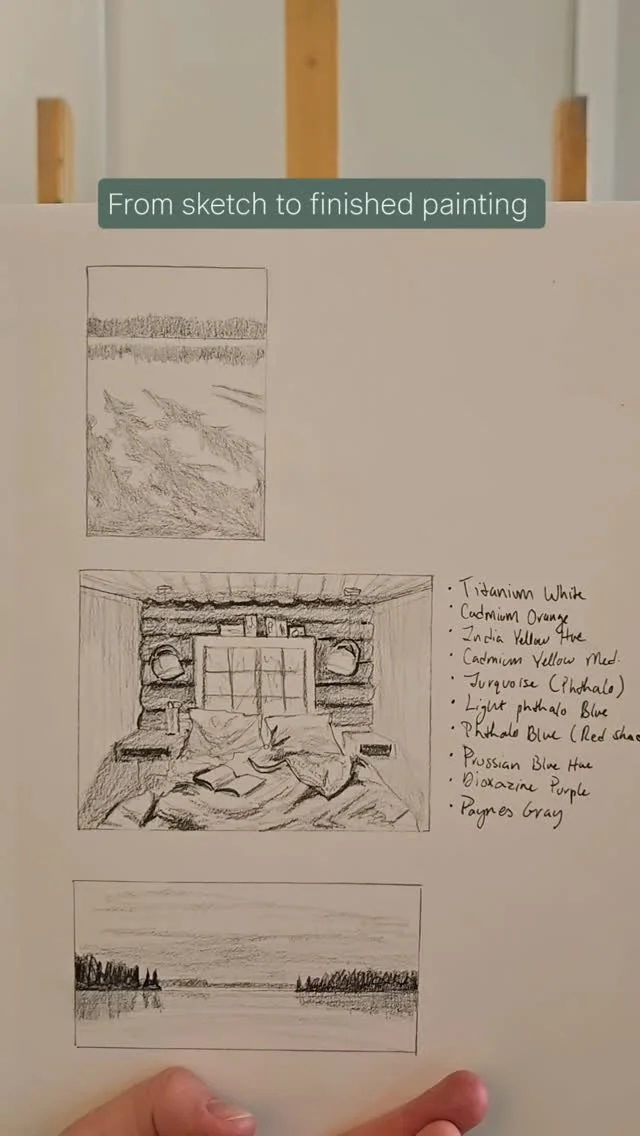 From sketch to finished painting
· Titanium White
· Cadmium Orange
· India Yellow Hue
· Cadmium Yellow Med.
· Turquoise (Phthalo)
· Light phthalo Blue
· Phthalo Blue (Red
· Prussian Blue Hue
· Dioxazine Purple
· Paynes Gray